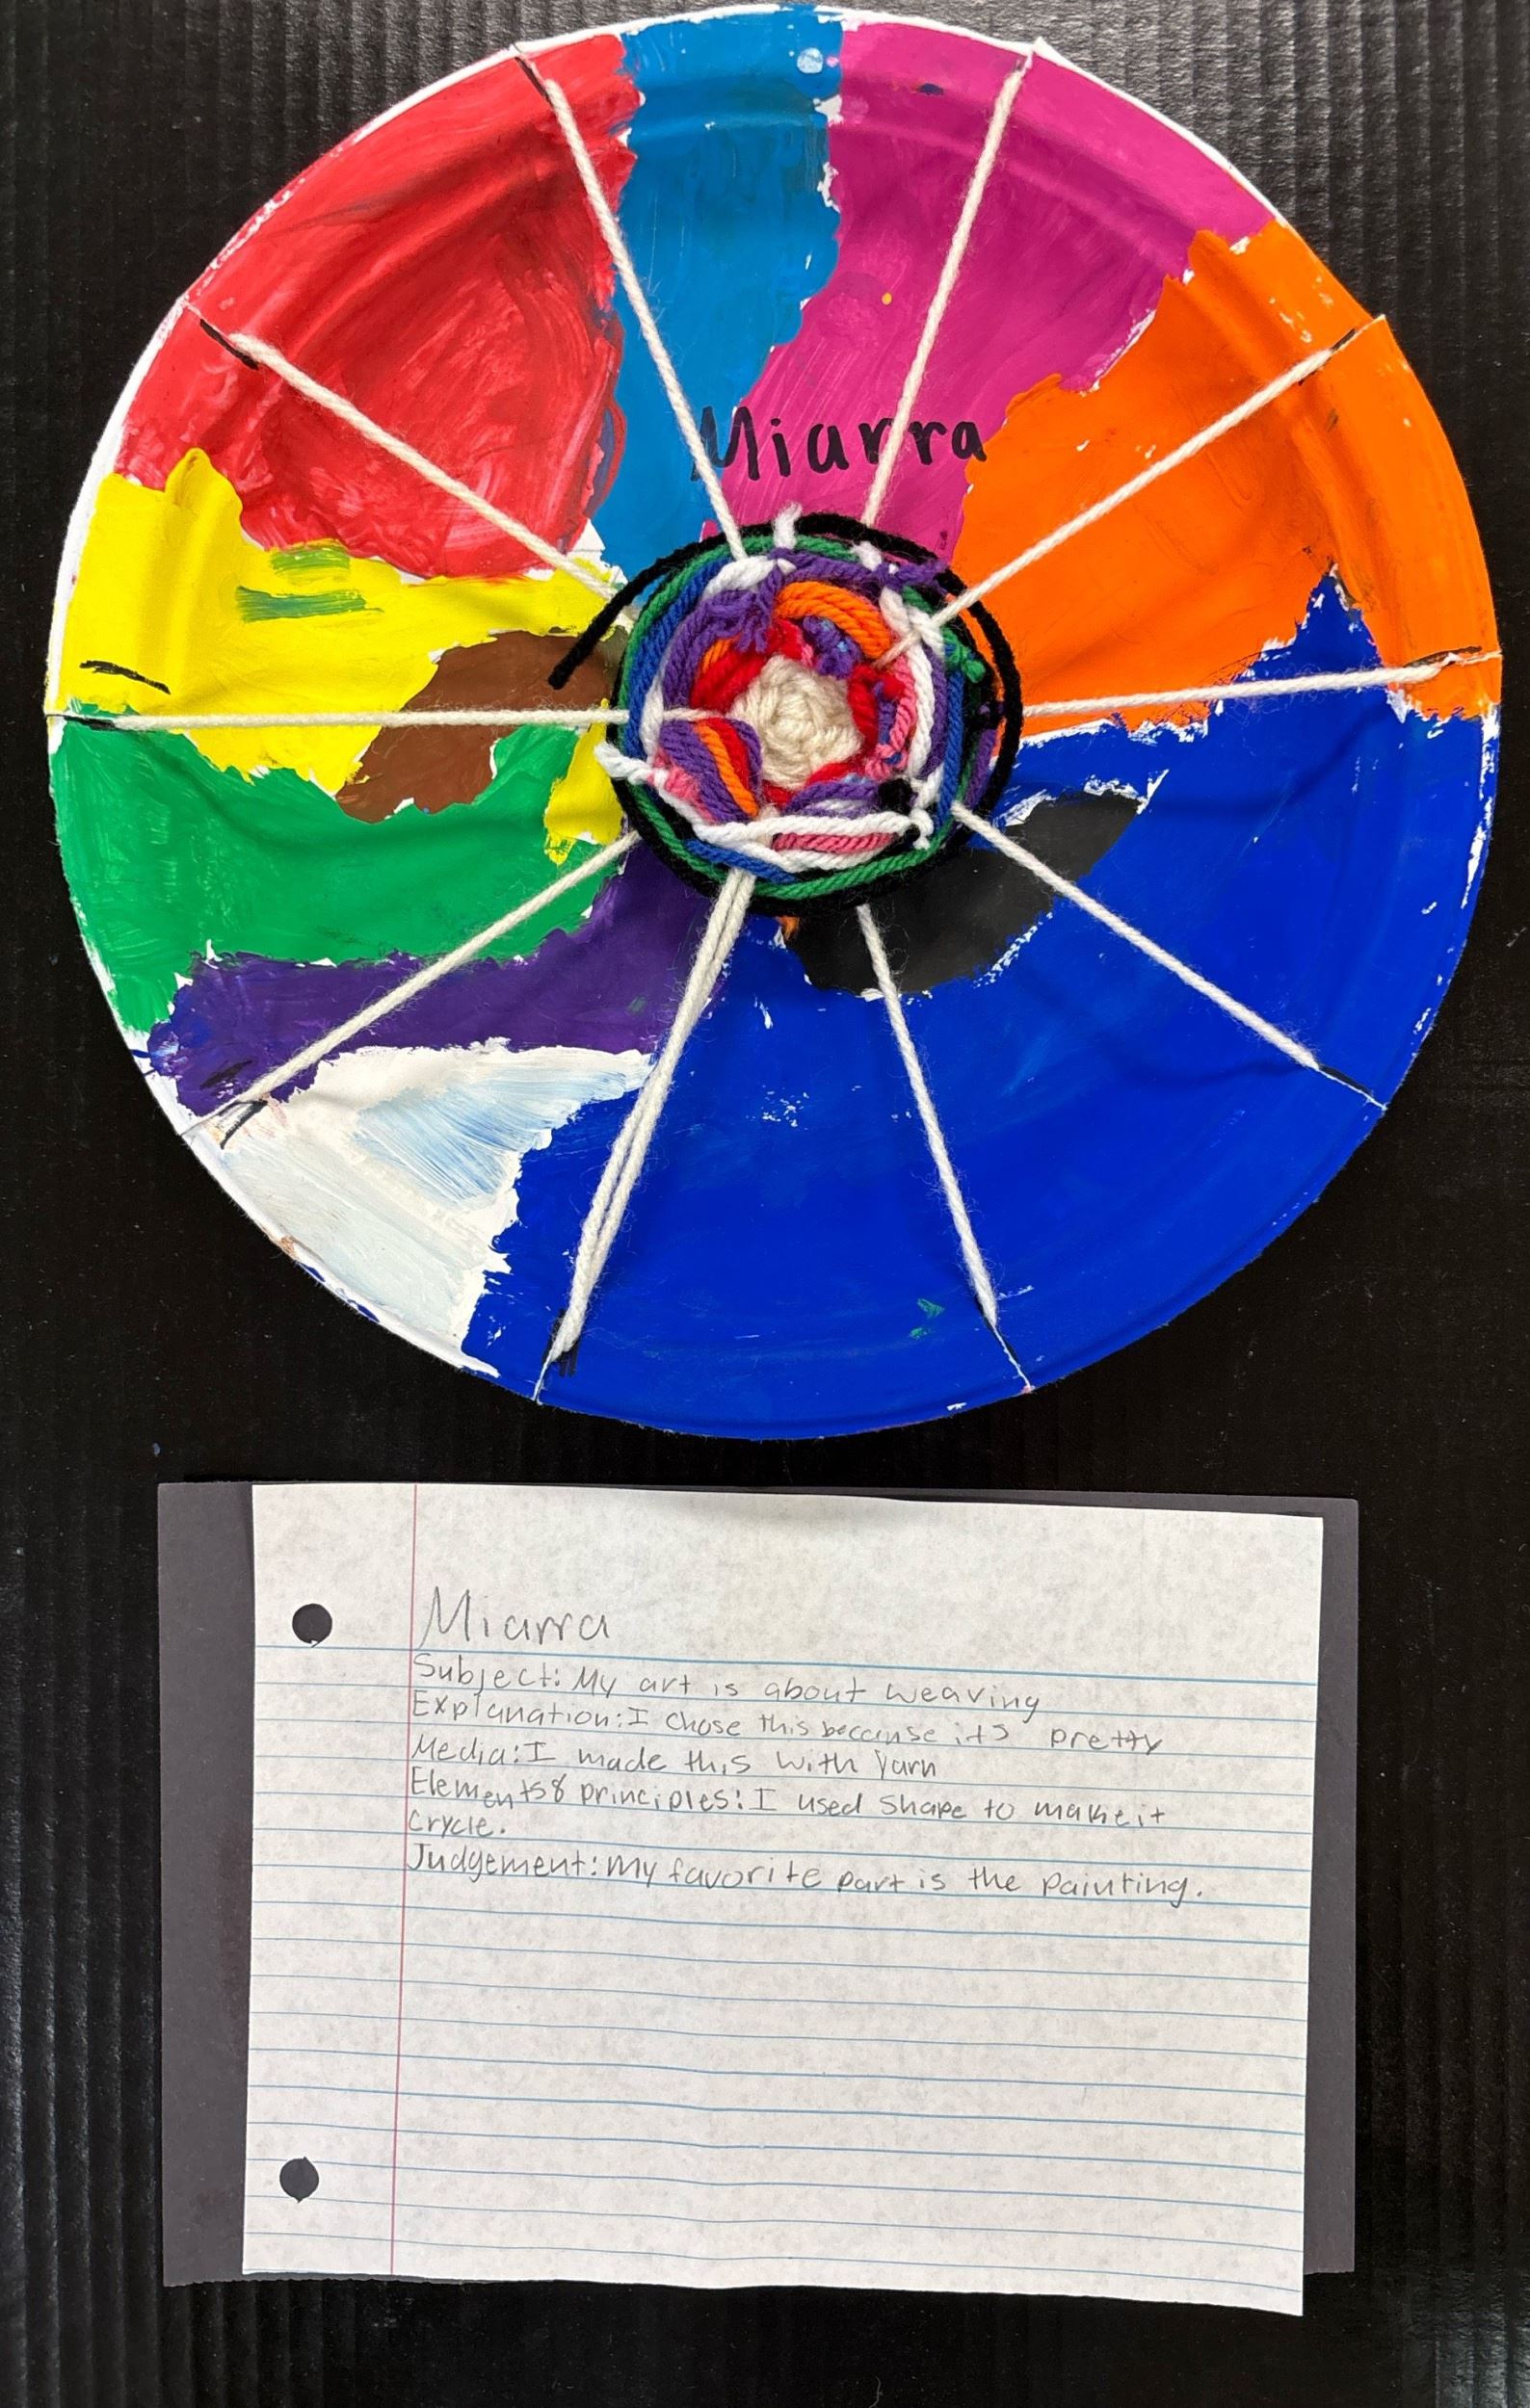 Miarra
Miarra
Subject: My art is about weaving
Explanation: I chose this beccause its pretty
Media: I made this with Yarn
Elements & principles: I used shape to make it
Crycle.
Judgement: My favorite part is the painting.